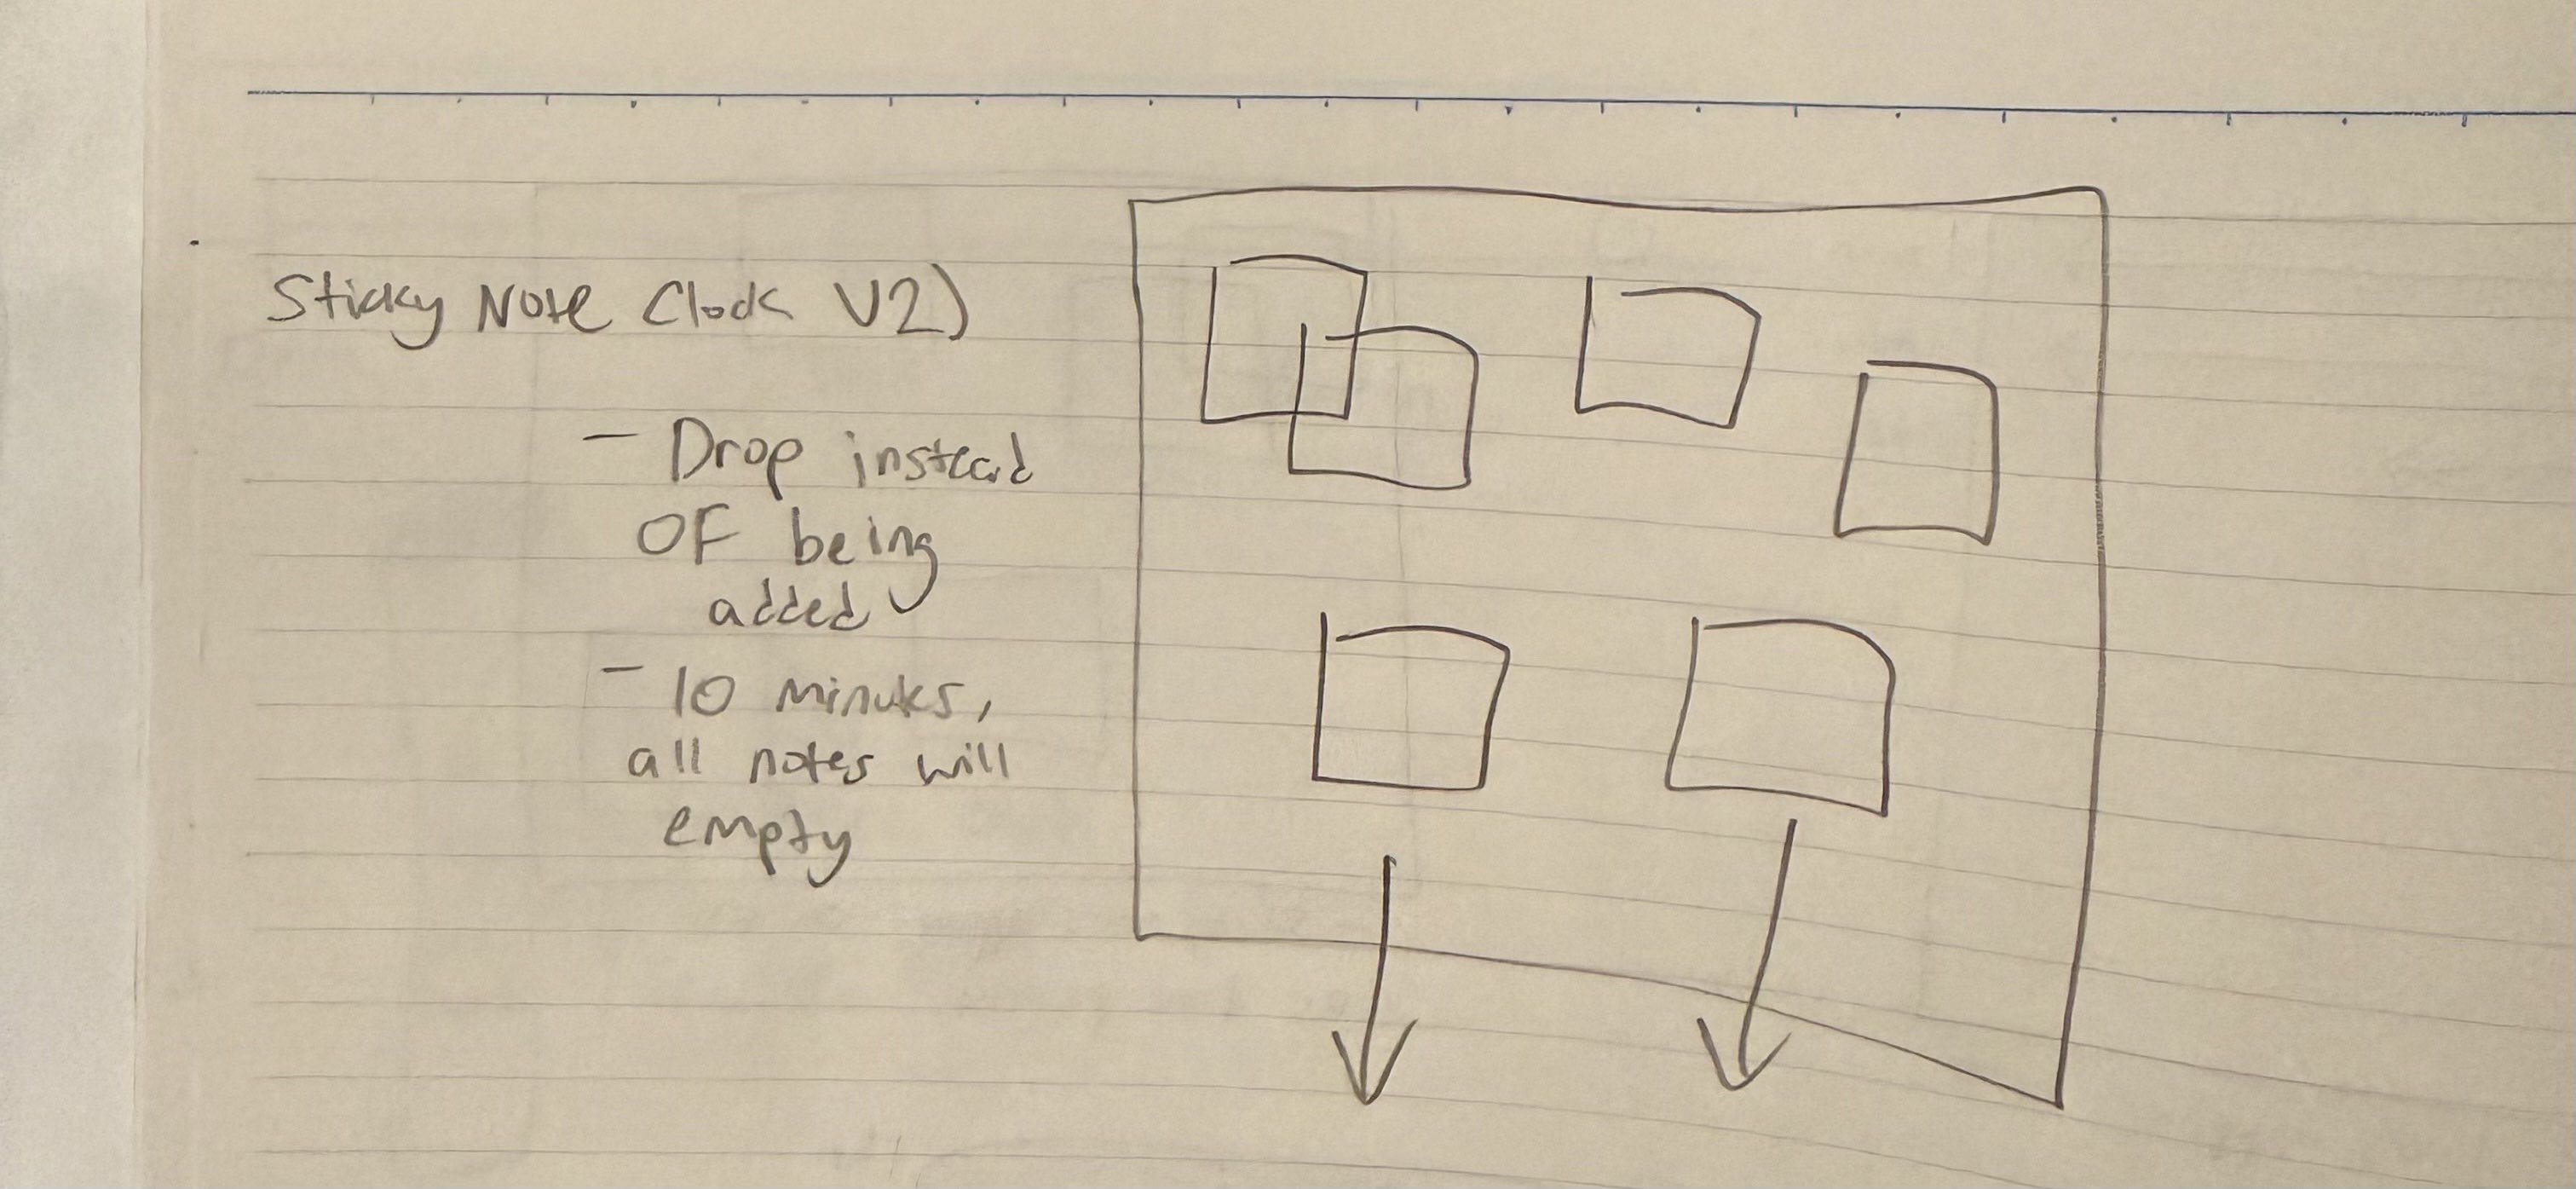 Sticky Note Clock V2)
- Drop instead
OF being
added
- 10 minutes,
all notes will
empty